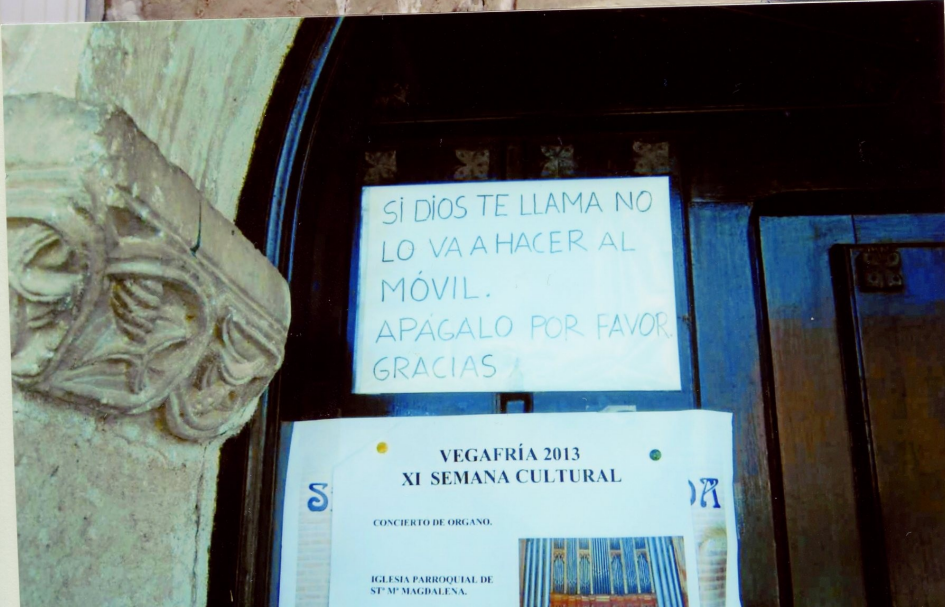 SI DIOS TE LLAMA NO
LO VA A HACER AL
MÓVIL.
APÁGALO POR FAVOR.
GRACIAS
VEGAFRÍA 2013
XI SEMANA CULTURAL
CONCIERTO DE ORGANO.
IGLESIA PARROQUIAL DE
STª Mª MAGDALENA.